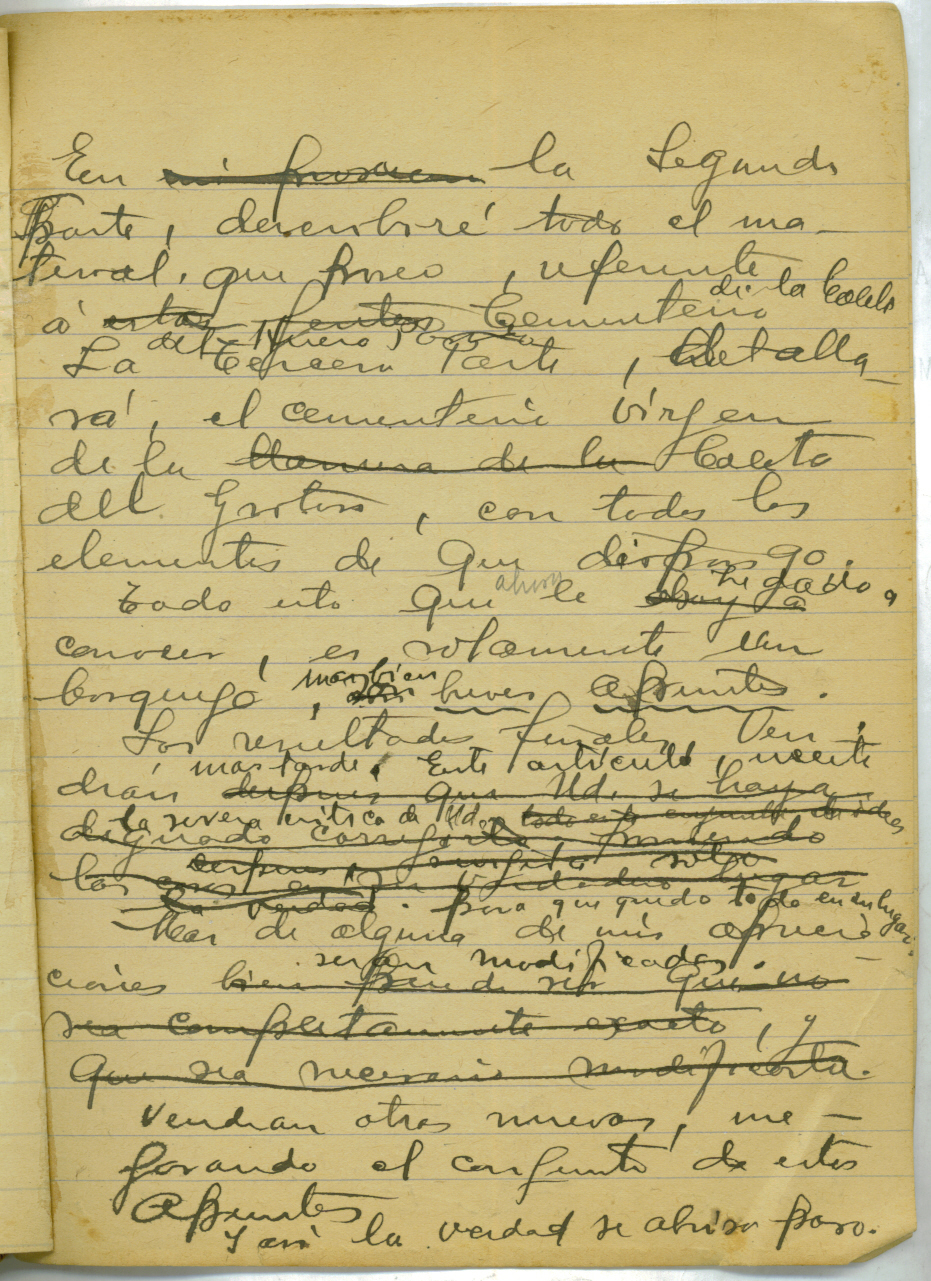 En mi la Segunda
Parte, describiré todo el ma-
terial, que poseo, referente
á estas Cementerio de la Caleta
del
La Tercera Parte, detalla-
rá, el cementerio virgen
de la llanura de la Caleta
del , con todos los
elementos de que dispongo.
ahora he dado a
Todo esto que le haya
conocer, es solamente un
bosquejó, mas bien breves apuntes.
Los resultados finales, Ven-
mas tarde. Este artículo,
drán despues que Ud. se haya
la severa critica de Ud. todo este conjunto de ideas
dignado corregirla,
verdadero lugar
la verdad. para que quede todo en su lugar.
Mas de alguna de mis aprecia-
serán modificadas.
ciones bien puede ser que no
sea completamente exacta, y
que sea necesario modificarla.
Vendran otras nuevas, me-
jorando el conjunto de estos
Apuntes
Y asi la verdad se abrira paso.